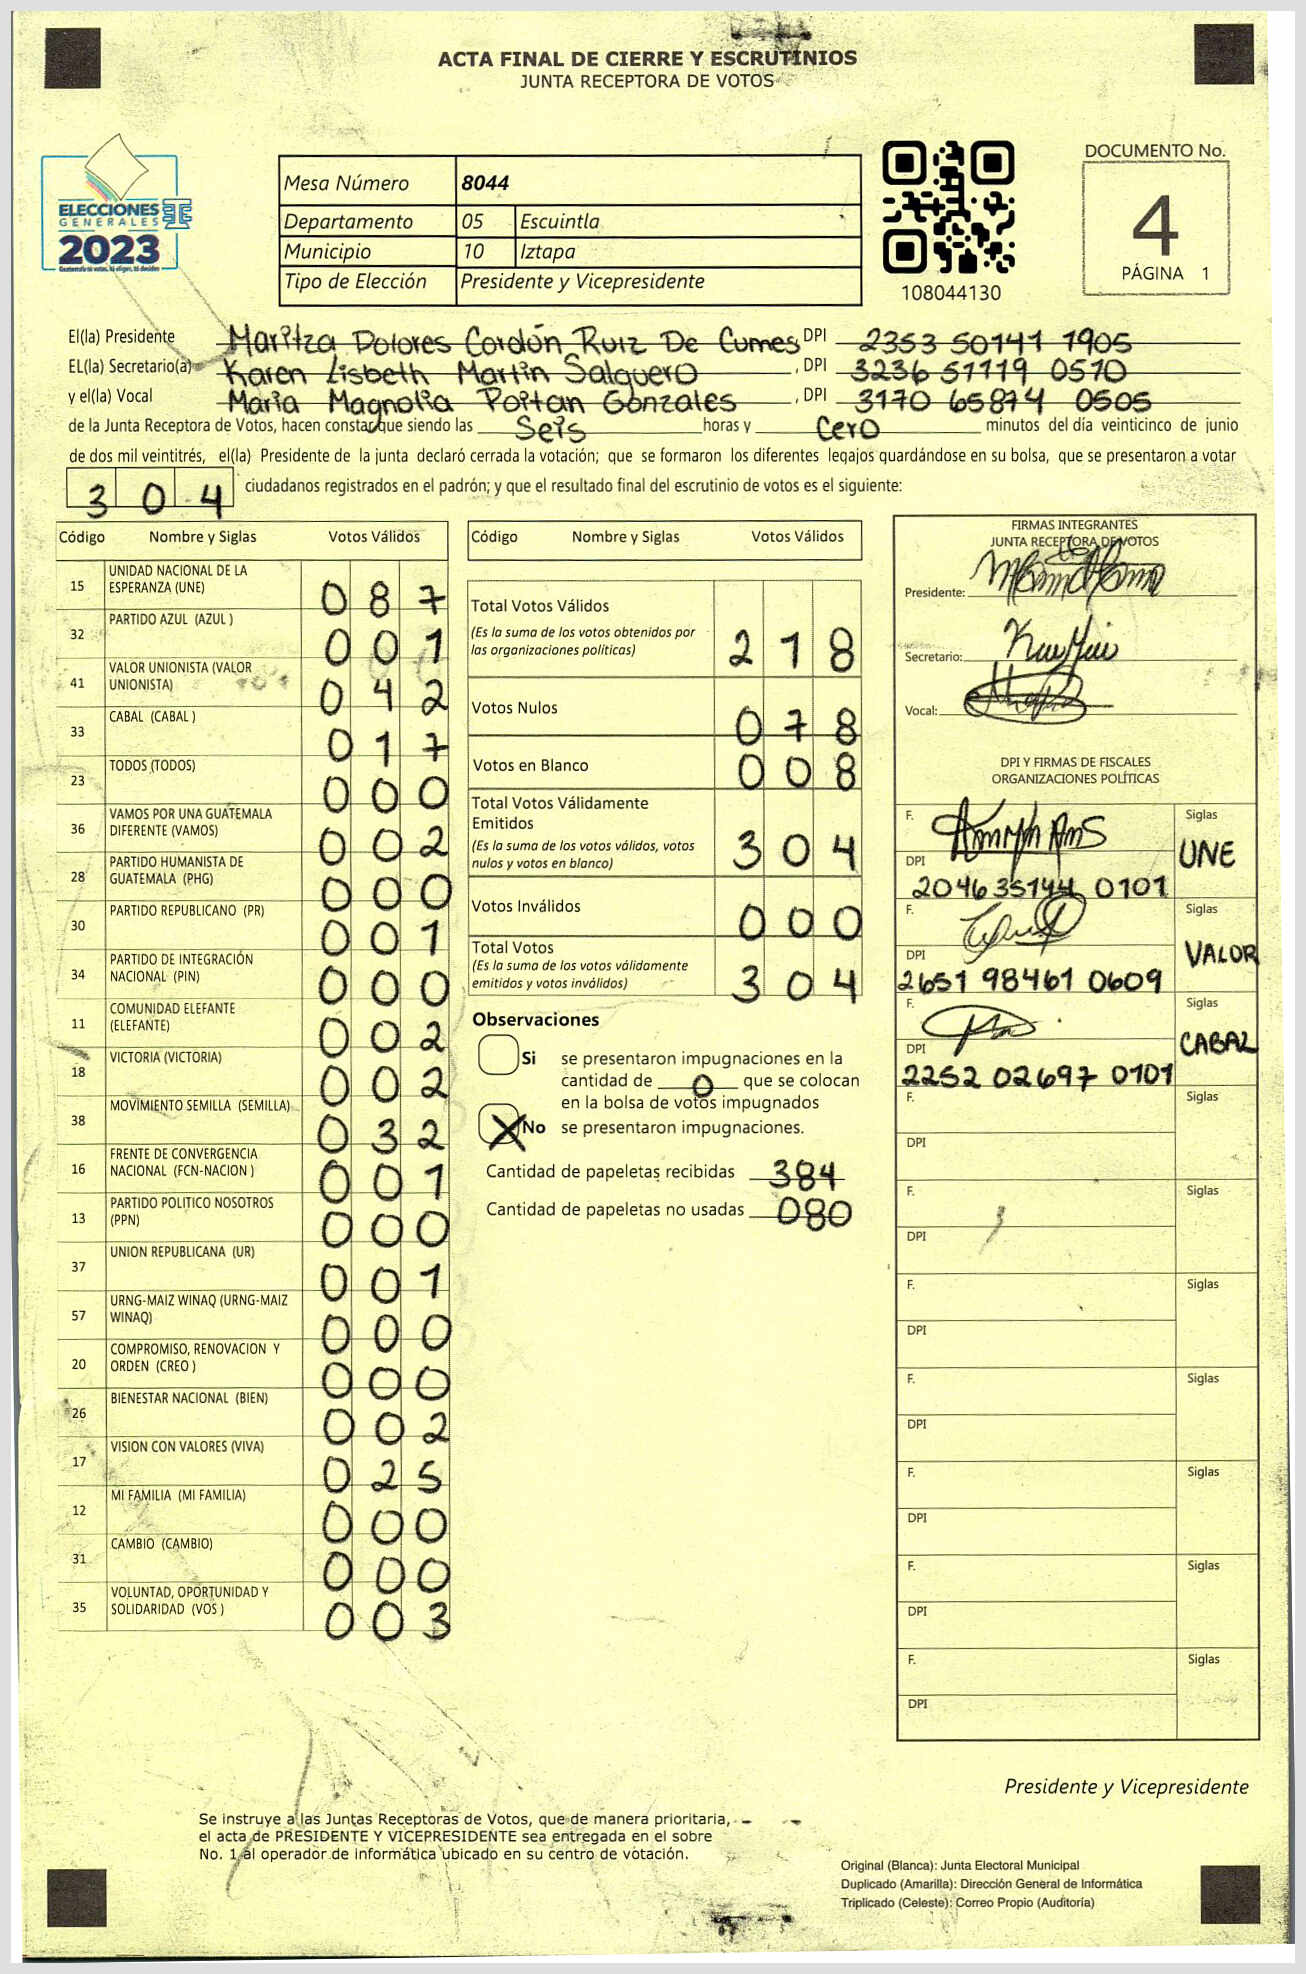 ACTA FINAL DE CIERRE Y ESCRUTINIOS
JUNTA RECEPTORA DE VOTOS
ELECCIONES
GENERALES
2023
Mesa Número 8044
Departamento 05 Escuintla
Municipio 10 Iztapa
Tipo de Elección Presidente y Vicepresidente
108044130
DOCUMENTO No.
4
PÁGINA 1
El(la) Presidente Maritza Dolores Cordón Ruiz De Cumes DPI 2353 50141 1905
EL(la) Secretario(a) Karen Lisbeth Martin Salguero , DPI 3236 51119 0510
y el(la) Vocal Maria Magnolia Poitan Gonzales , DPI 3170 65874 0505
de la Junta Receptora de Votos, hacen constar que siendo las Seis horas y Cero minutos del día veinticinco de junio
de dos mil veintitrés, el(la) Presidente de la junta declaró cerrada la votación; que se formaron los diferentes legajos guardándose en su bolsa, que se presentaron a votar
304 ciudadanos registrados en el padrón; y que el resultado final del escrutinio de votos es el siguiente:
Código Nombre y Siglas Votos Válidos
15 UNIDAD NACIONAL DE LA ESPERANZA (UNE) 087
32 PARTIDO AZUL (AZUL ) 001
41 VALOR UNIONISTA (VALOR UNIONISTA) 042
33 CABAL (CABAL ) 017
23 TODOS (TODOS) 000
36 VAMOS POR UNA GUATEMALA DIFERENTE (VAMOS) 002
28 PARTIDO HUMANISTA DE GUATEMALA (PHG) 000
30 PARTIDO REPUBLICANO (PR) 001
34 PARTIDO DE INTEGRACIÓN NACIONAL (PIN) 000
11 COMUNIDAD ELEFANTE (ELEFANTE) 002
18 VICTORIA (VICTORIA) 002
38 MOVIMIENTO SEMILLA (SEMILLA) 032
16 FRENTE DE CONVERGENCIA NACIONAL (FCN-NACION ) 001
13 PARTIDO POLITICO NOSOTROS (PPN) 000
37 UNION REPUBLICANA (UR) 001
57 URNG-MAIZ WINAQ (URNG-MAIZ WINAQ) 000
20 COMPROMISO, RENOVACION Y ORDEN (CREO ) 000
26 BIENESTAR NACIONAL (BIEN) 002
17 VISION CON VALORES (VIVA) 025
12 MI FAMILIA (MI FAMILIA) 000
31 CAMBIO (CAMBIO) 000
35 VOLUNTAD, OPORTUNIDAD Y SOLIDARIDAD (VOS ) 003
Código Nombre y Siglas Votos Válidos
Total Votos Válidos
(Es la suma de los votos obtenidos por
las organizaciones politicas) 218
Votos Nulos 078
Votos en Blanco 008
Total Votos Válidamente
Emitidos
(Es la suma de los votos válidos, votos
nulos y votos en blanco) 304
Votos Inválidos 000
Total Votos
(Es la suma de los votos válidamente
emitidos y votos inválidos) 304
Observaciones
Si se presentaron impugnaciones en la
cantidad de 0 que se colocan
en la bolsa de votos impugnados
X No se presentaron impugnaciones.
Cantidad de papeletas recibidas 384
Cantidad de papeletas no usadas 080
FIRMAS INTEGRANTES
JUNTA RECEPTORA DE VOTOS
Presidente:
Secretario:
Vocal:
DPI Y FIRMAS DE FISCALES
ORGANIZACIONES POLÍTICAS
F. Siglas
UNE
DPI
2046 35144 0101
F. Siglas
VALOR
DPI
2651 98461 0609
F. Siglas
CABAL
DPI
2252 02697 0101
F. Siglas
DPI
F. Siglas
DPI
F. Siglas
DPI
F. Siglas
DPI
F. Siglas
DPI
F. Siglas
DPI
F. Siglas
DPI
Presidente y Vicepresidente
Se instruye a las Juntas Receptoras de Votos, que de manera prioritaria,
el acta de PRESIDENTE Y VICEPRESIDENTE sea entregada en el sobre
No. 1 al operador de informática ubicado en su centro de votación.
Original (Blanca): Junta Electoral Municipal
Duplicado (Amarilla): Dirección General de Informática
Triplicado (Celeste): Correo Propio (Auditoría)